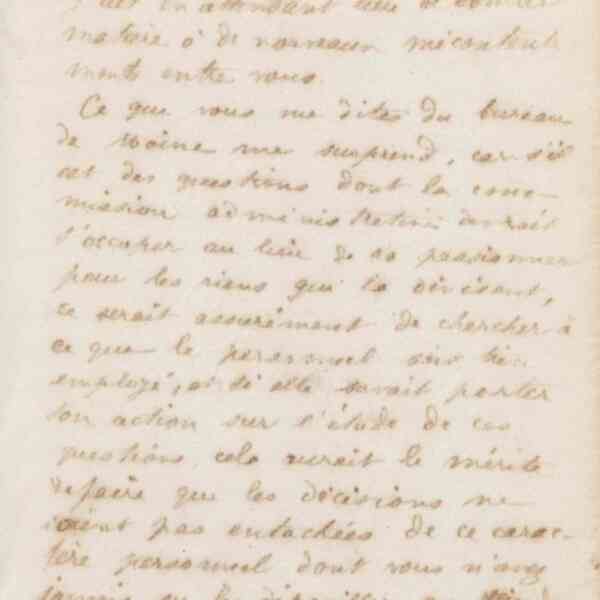 en attendant lieu de donner
matière à de nouveaux mécontente
ments entre vous.
Ce que vous me dites du bureau
de me surprend, car s'il
est des questions dont la com-
mission administrative devrait
s'occuper au lieu de se passionner
pour les riens qui la divisent,
ce serait assurément de chercher à
ce que le personnel soit bien
employé, et si elle savait porter
son action sur l'étude de ces
questions, cela aurait le mérite
de faire que les décisions ne
soient pas entachées de ce carac-
tère personnel dont vous n'avez
jamais